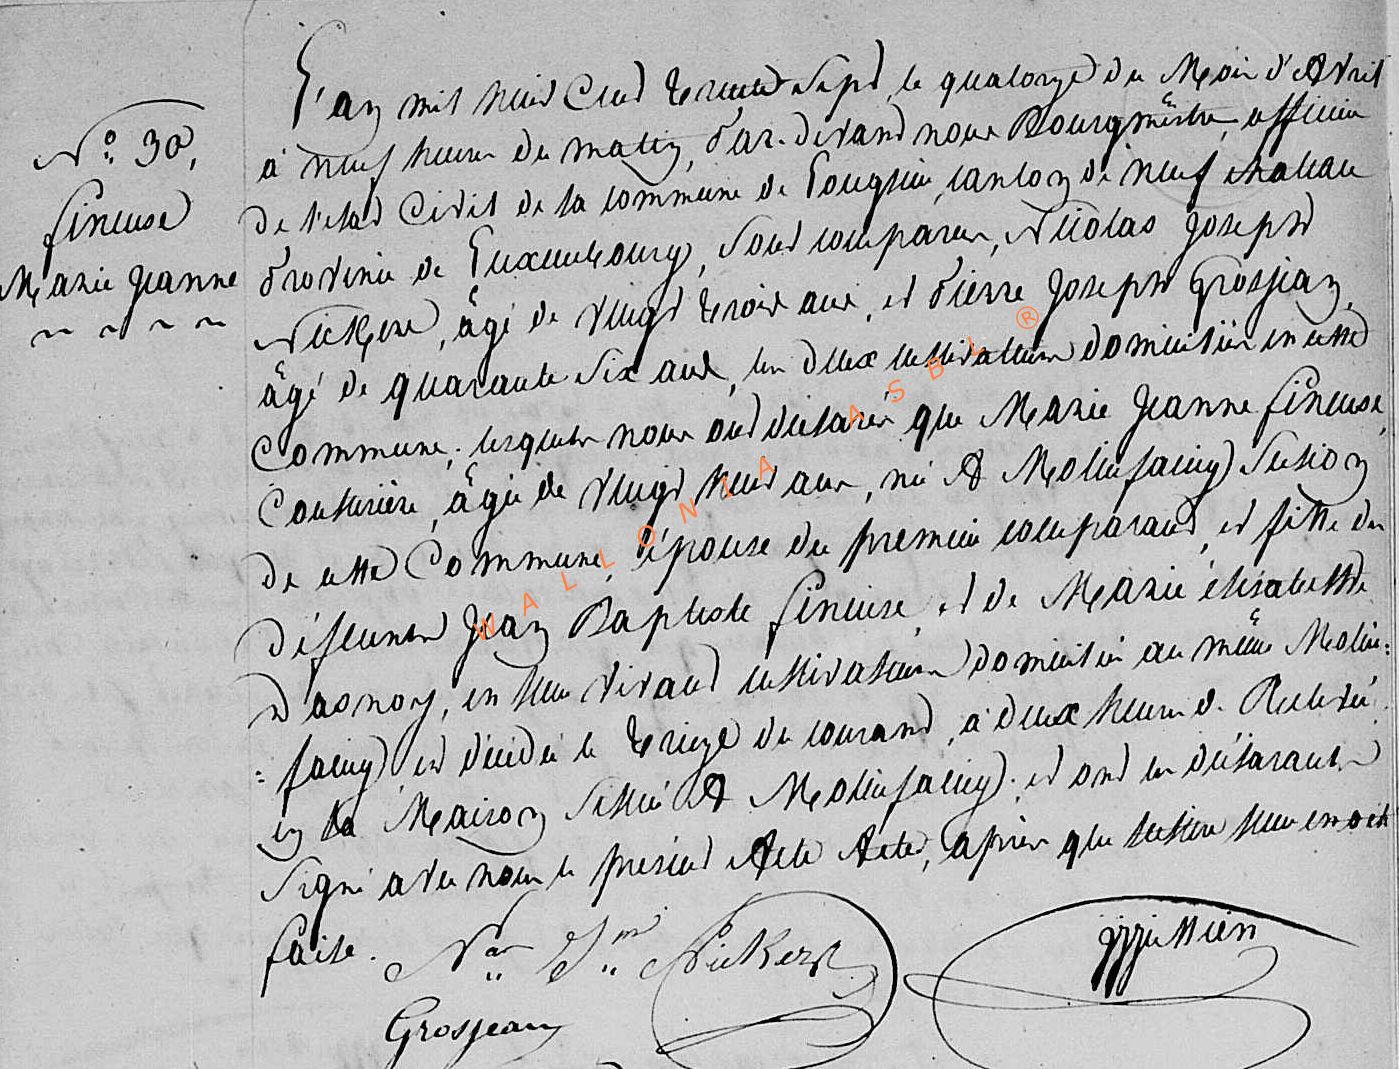 N° 30,
Lineuse
Marie Jeanne
~ ~ ~ ~
L'an mil huit Cent trente Sept, le quatorze du Mois d'Avril
à neuf heures du matin, Par-devant nous Bourgmêstre, officier
de l'etat Civil de la commune de Longlier, canton de neuf chateau
Province de Luxembourg, Sont comparus, Nicolas Joseph
âgé de vingt trois ans, et Pierre Joseph Grosjean,
âgé de quarante Six ans, les deux cultivateurs domiciliés en cette
Commune; lesquels nous ont déclarés que Marie Jeanne Lineuse,
Couturière, âgée de vingt huit ans, née A Molinfaing Section
de cette Commune, épouse du premier comparant, et fille des
défunts Jean Baptiste Lineuse, et de Marie élisabethe
Dasnoy, en leur vivant cultivateurs domiciliés au même Molin=
=faing est décédée le treize du courant, à deux heures de Relevée,
en sa Maison Située A Molinfaing; et ont les déclarants
Signé avec nous le présent Acte, après que lecture leur en oit
faite.
Nas Jph Nickers
Grosjean
WALLONIA ASBL ®